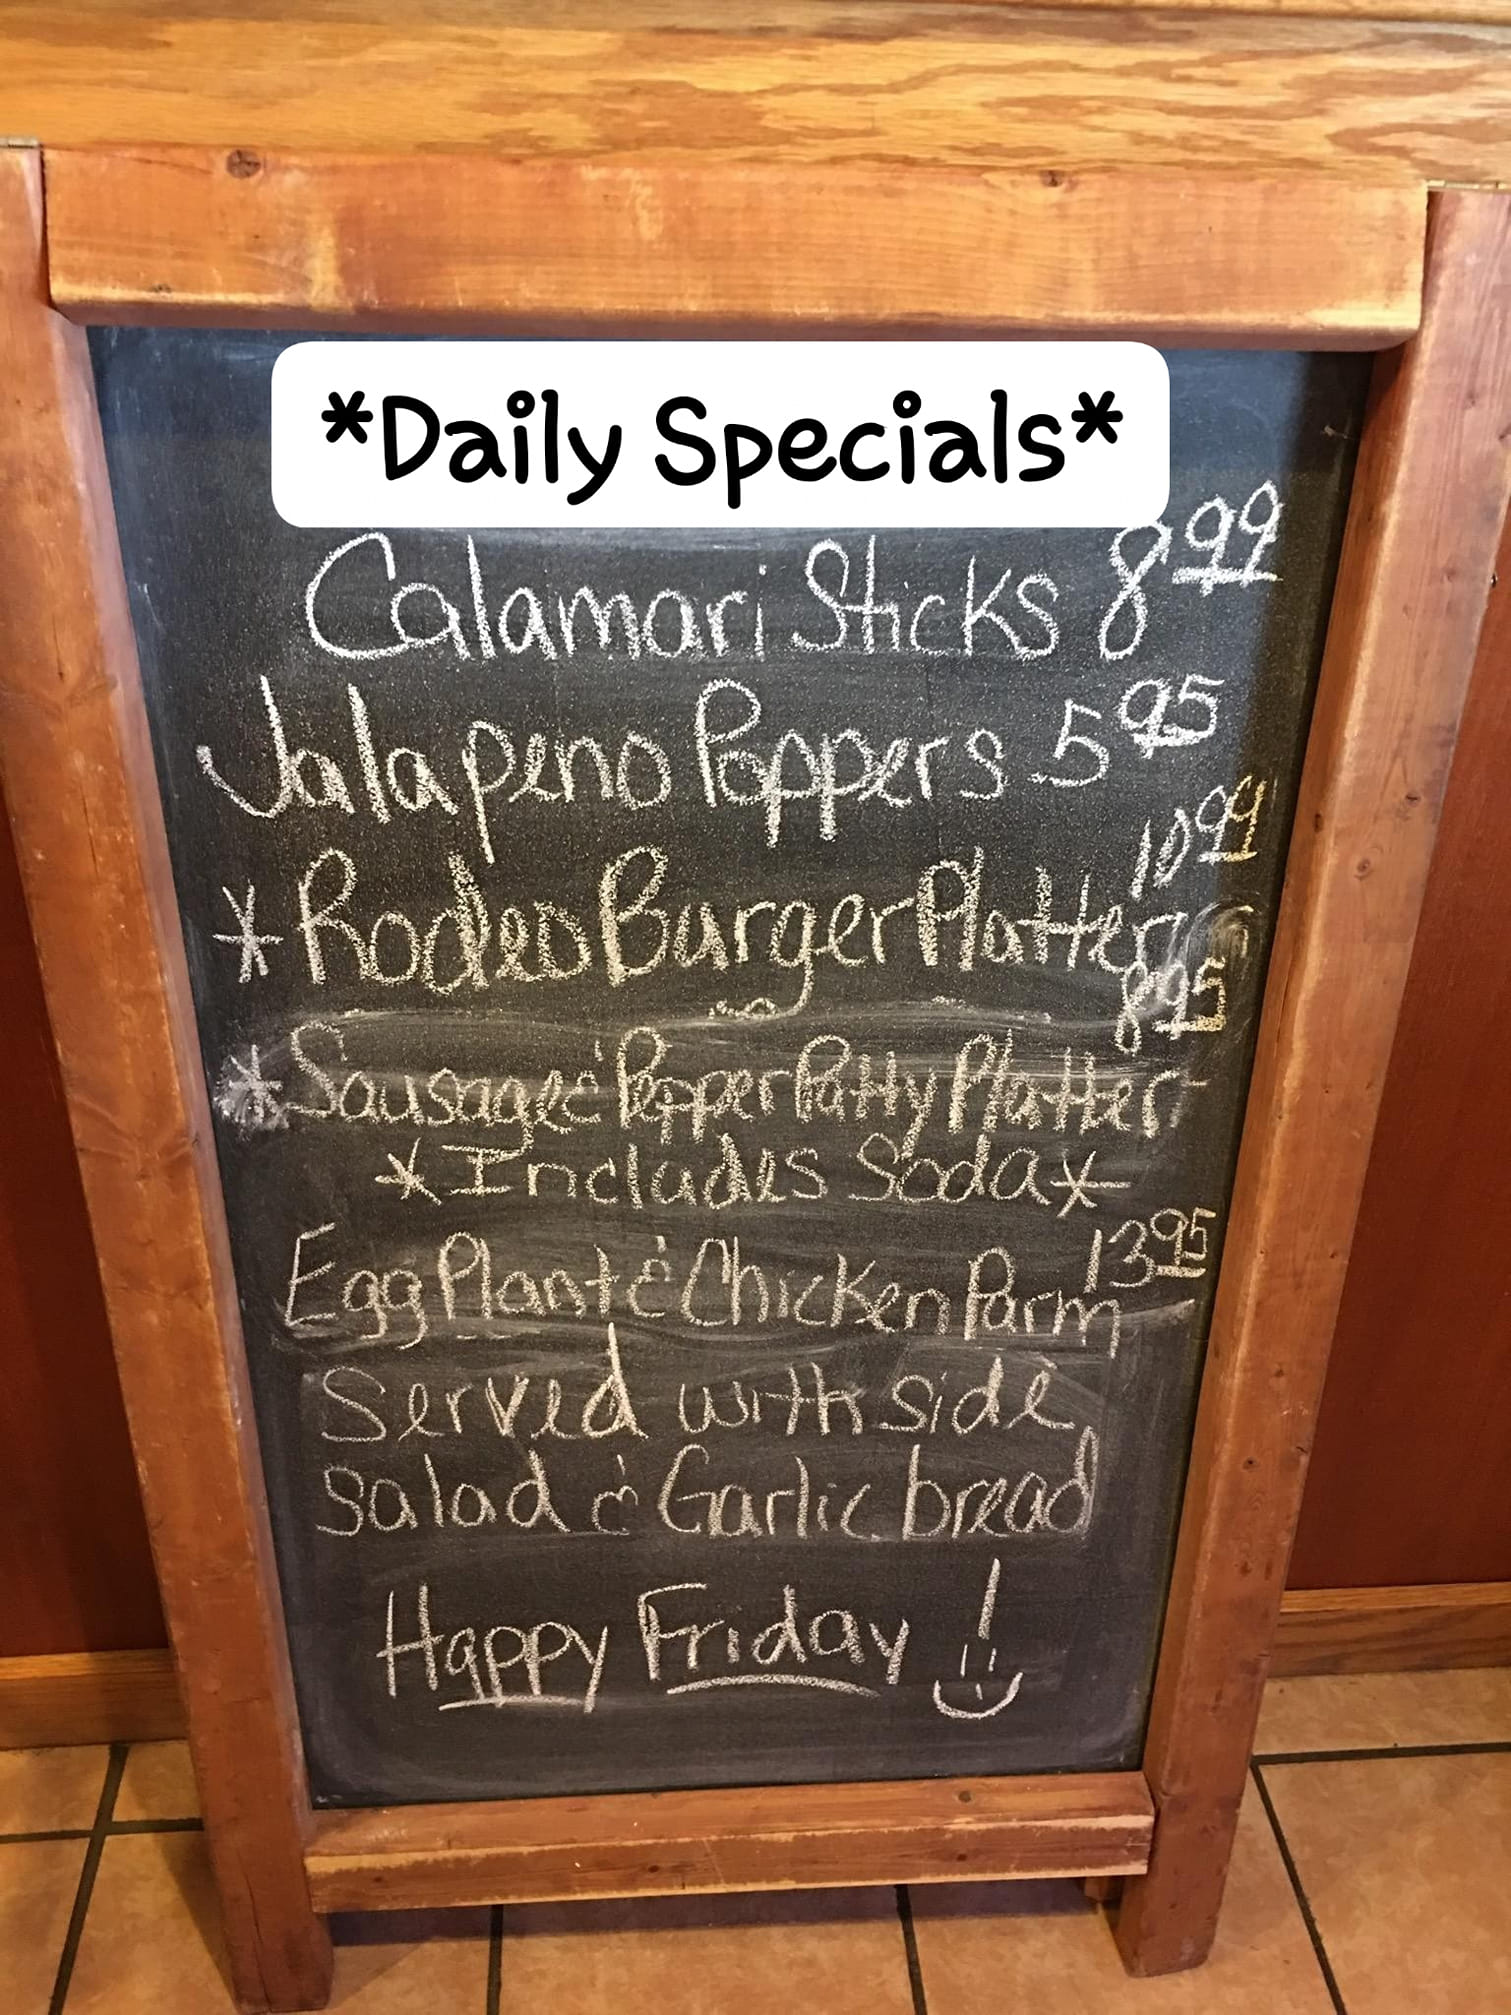 *Daily Specials*
Calamari Sticks 8.99
Jalapeno Poppers 5.95
10.99
* Rodeo Burger Platter
8.95
* Sausage & Pepper Patty Platter
*Includes Soda*
13.95
Egg Plant & Chicken Parm
Served with side
salad & Garlic bread
Happy Friday !